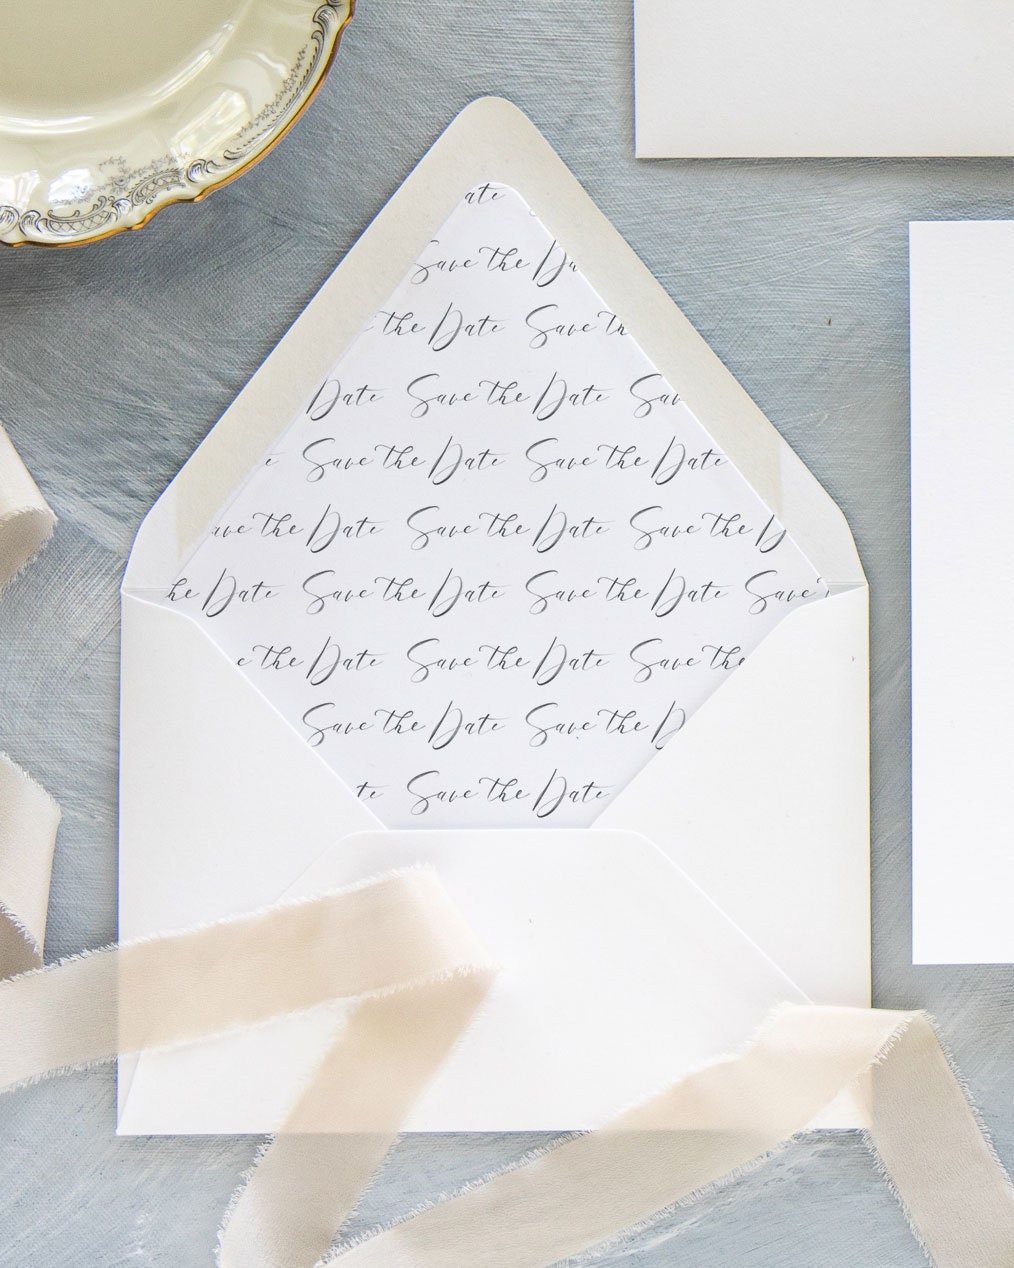 ate
Save the Da
the Date Save th
Date Save the Date Sav
e Save the Date Save the Date
ave the Date Save the Date Save the D
he Date Save the Date Save the Date Save
e the Date Save the Date Save the
Save the Date Save the D
te Save the Date